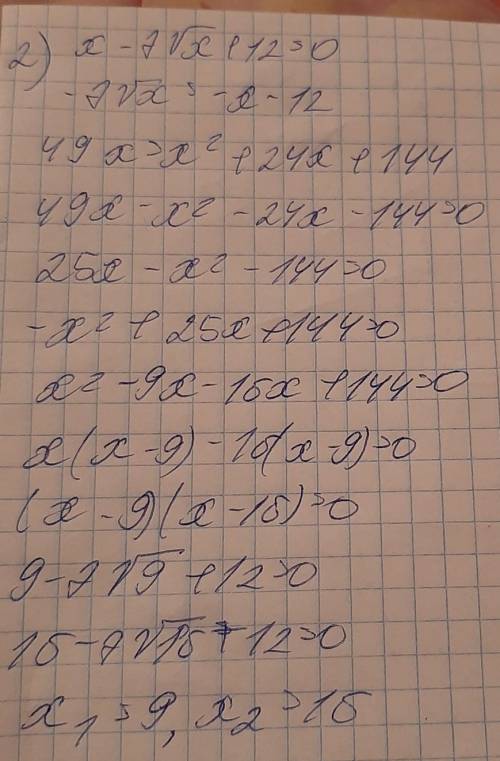 2) x - 7√x + 12 = 0
-7√x = -x - 12
49x = x² + 24x + 144
49x - x² - 24x - 144 = 0
25x - x² - 144 = 0
-x² + 25x + 144 = 0
x² - 9x - 16x + 144 = 0
x(x - 9) - 16(x - 9) = 0
(x - 9)(x - 16) = 0
9 - 7√9 + 12 = 0
16 - 7√16 + 12 = 0
x₁ = 9, x₂ = 16